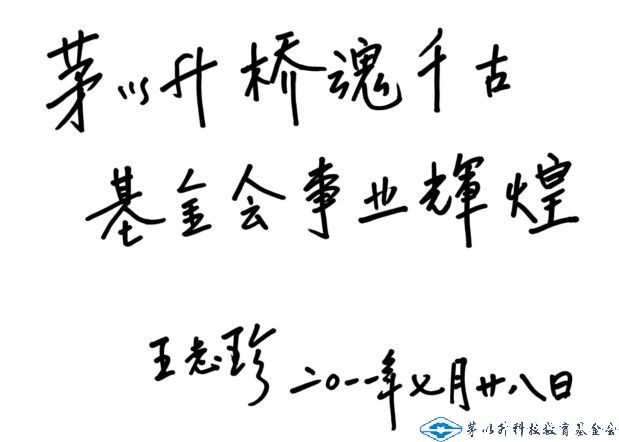 茅以升桥魂千古
基金会事业輝煌
王志珍 二〇一一年七月廿八日
茅以升科技教育基金会